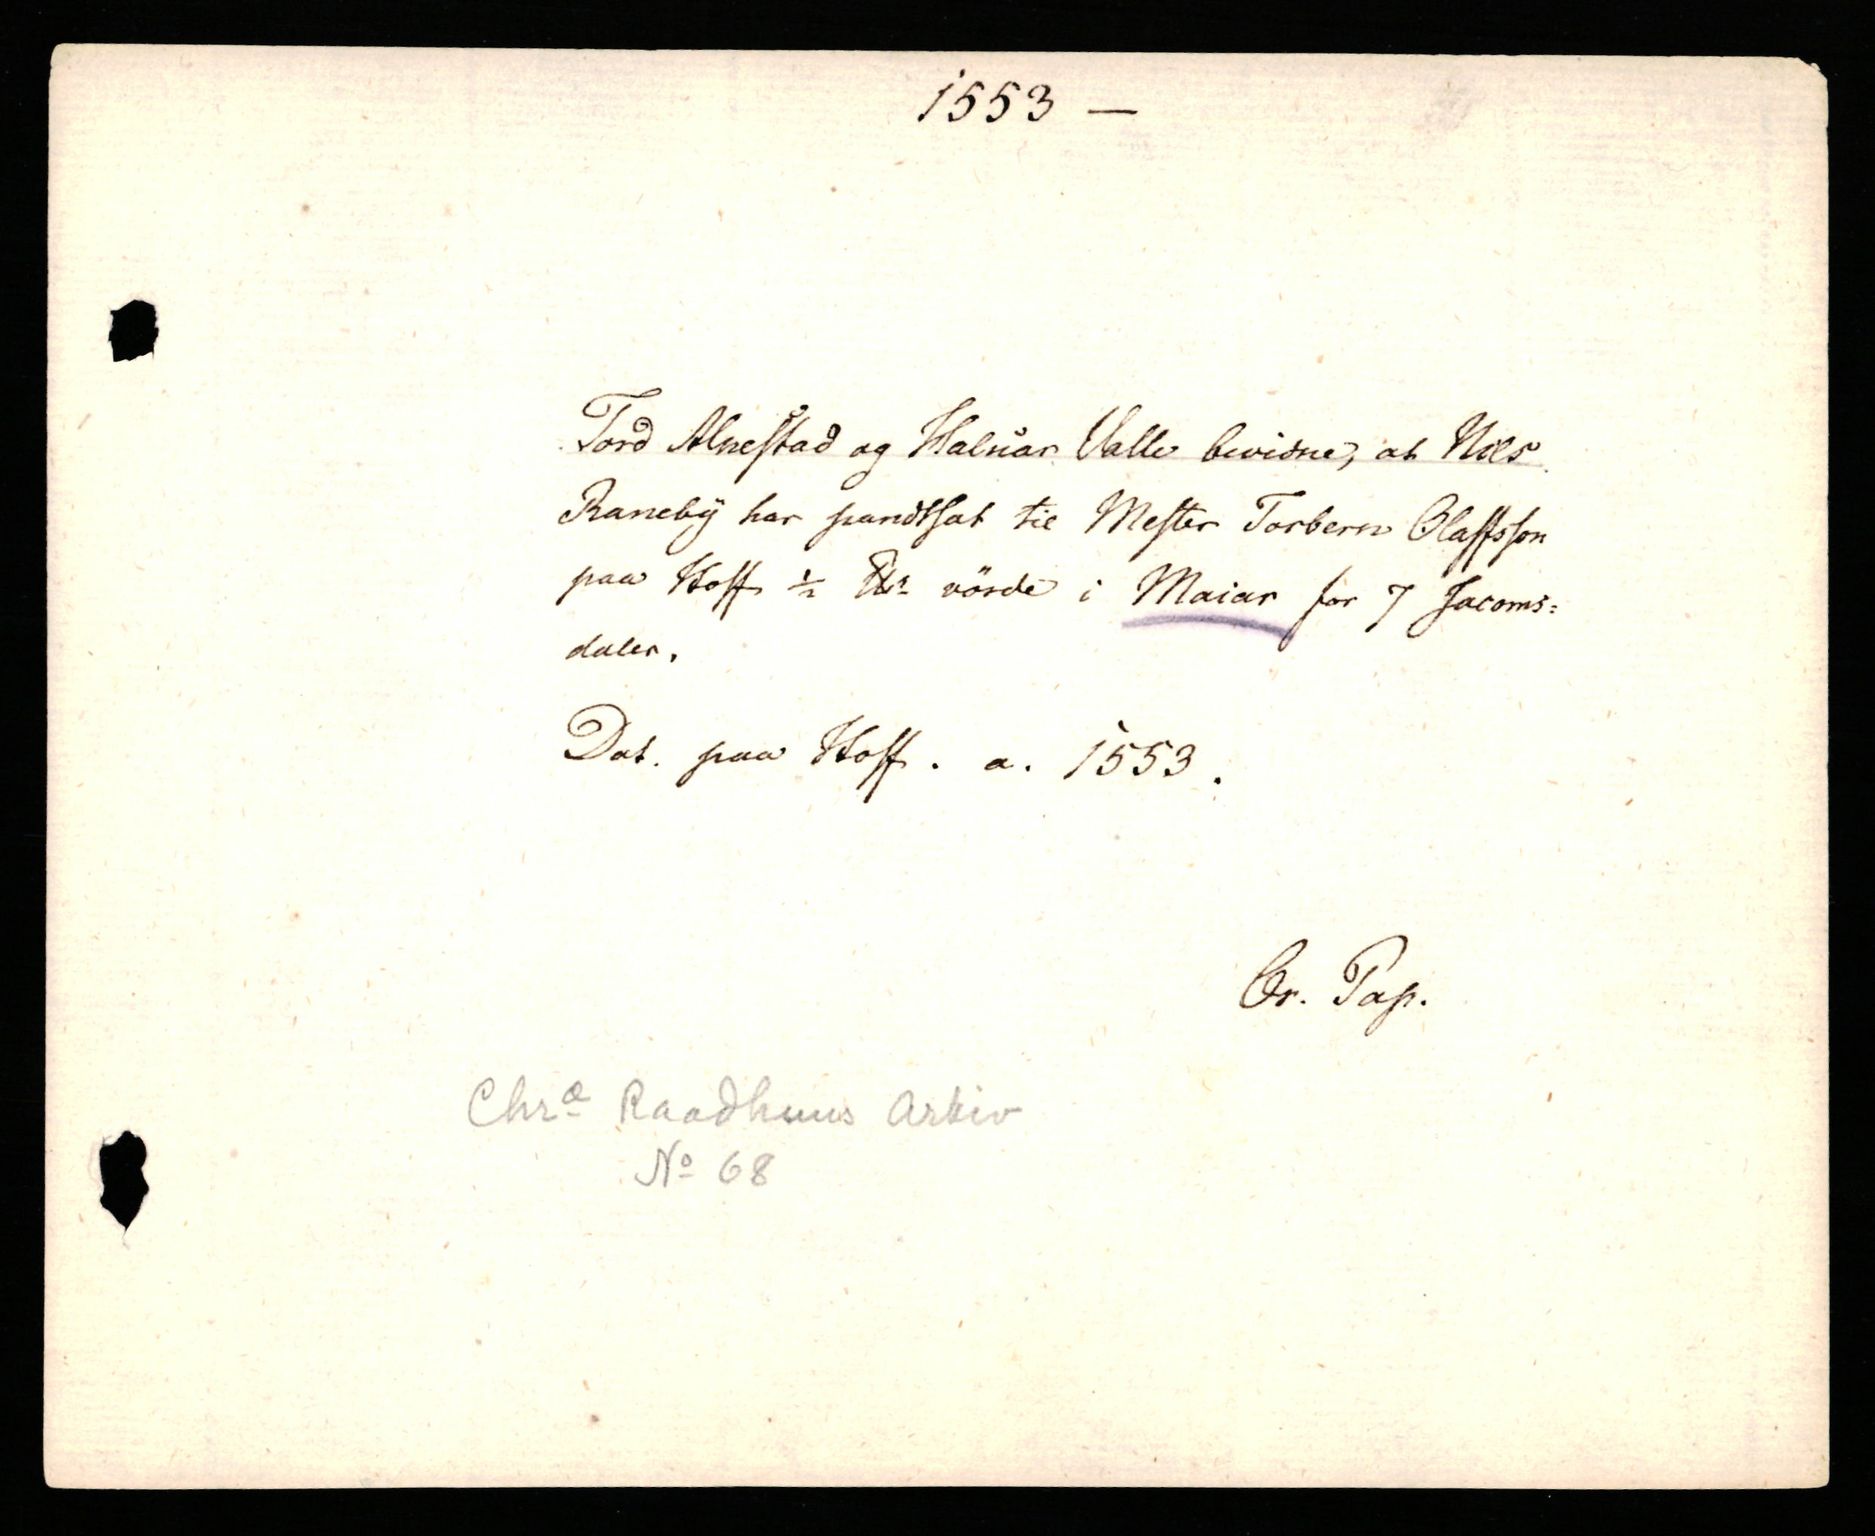 1553 —
Tord Alnestad og Halűar Valle bevidne, at Nils
Ranebÿ har pandtsat til Mester Torbern Olaffsson
paa Hoff ½ vörde i Maiar for 7 Jacoms=
daler.
Dat. paa Hoff. a. 1553.
Or. Pap.
Chra Raadhuus Arkiv
No 68